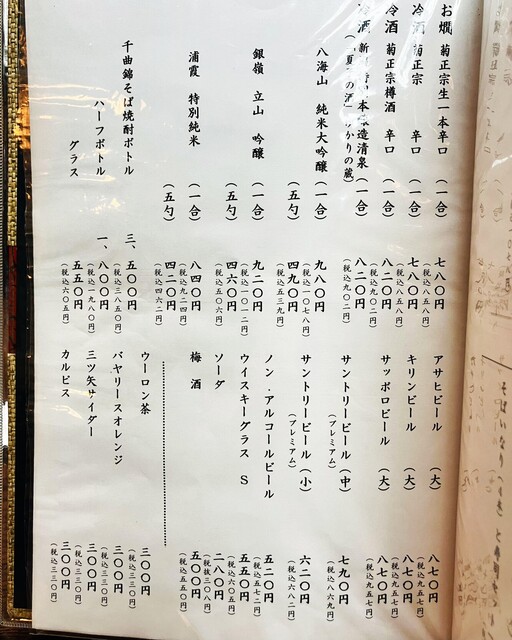 お燗 菊正宗生一本辛口 (一合) 七八〇円
(税込八五八円)
冷酒 菊正宗 辛口 (一合) 七八〇円
(税込八五八円)
冷酒 菊正宗樽酒 辛口 (一合) 八二〇円
(税込九〇二円)
造清泉 (一合) 八二〇円
(税込九〇二円)
八海山 純米大吟醸 (一合) 九八〇円
(税込一〇七八円)
(五勺) 四九〇円
(税込五三九円)
銀嶺 立山 吟醸 (一合) 九二〇円
(税込一〇一二円)
(五勺) 四六〇円
(税込五〇六円)
浦霞 特別純米 (一合) 八四〇円
(税込九二四円)
(五勺) 四二〇円
(税込四六二円)
千曲錦そば焼酎ボトル 三、五〇〇円
(税込三八五〇円)
ハーフボトル 一、八〇〇円
(税込一九八〇円)
グラス 五五〇円
(税込六〇五円)
アサヒビール (大) 八七〇円
(税込九五七円)
キリンビール (大) 八七〇円
(税込九五七円)
サッポロビール (大) 八七〇円
(税込九五七円)
サントリービール (中) 七九〇円
(プレミアム) (税込八六九円)
サントリービール (小) 六二〇円
(プレミアム) (税込六八二円)
ノン.アルコールビール 五二〇円
(税込五七二円)
ウイスキーグラス S 五五〇円
(税込六〇五円)
ソーダ 二八〇円
(税抜三〇八円)
梅酒 五〇〇円
(税込五五〇円)
ウーロン茶 三〇〇円
(税込三三〇円)
バヤリースオレンジ 三〇〇円
(税込三三〇円)
三ツ矢サイダー 三〇〇円
(税込三三〇円)
カルピス 三〇〇円
(税込三三〇円)